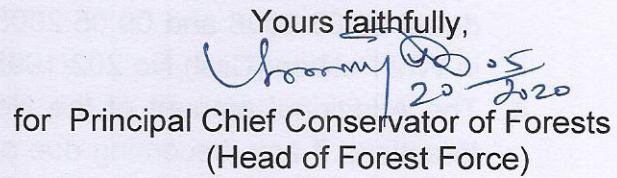 Yours faithfully,
20.05.2020
for Principal Chief Conservator of Forests
(Head of Forest Force)